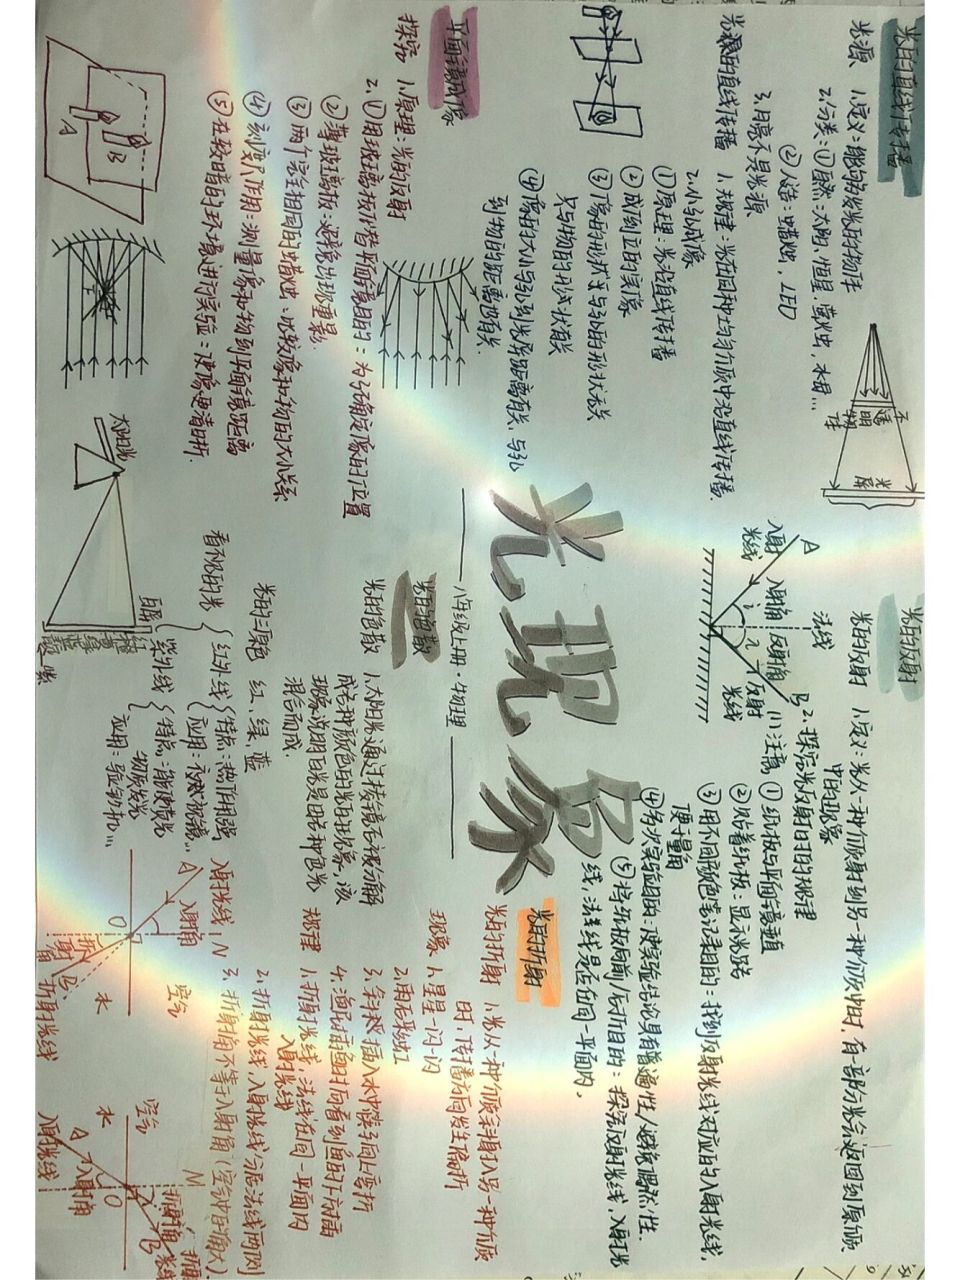 光的直线传播
光源 1.定义:能够发光的物体
2.分类:①自然:太阳,恒星,萤火虫,水母...
②人造:蜡烛,LED
3.月亮不是光源
光源的直线传播 1.规律:光在同种均匀介质中沿直线传播.
2.小孔成像
①原理:光沿直线传播
②成倒立的实像
③像的形状与小孔的形状无关
与物的形状有关
④像的大小与孔到光屏距离有关,与孔
到物的距离也有关.
不透明物体
光屏
平面镜成像
探究 1.原理:光的反射
2.①用玻璃板代替平面镜目的:为了确定像的位置
②薄玻璃板:避免出现重影
③两个完全相同的蜡烛:比较像和物的大小关系
④刻度尺作用:测量像和物到平面镜距离
⑤在较暗的环境进行实验:使像更清晰.
A
B
光现象
八年级上册·物理
光的反射
光的反射 1.定义:光从一种介质射到另一种介质中时,有一部分光会返回到原介质
中的现象
2.探究光反射时的规律
(1)注意 ①纸板与平面镜垂直
②贴着纸板:显示光路
③用不同颜色笔记录目的:找到反射光线对应的入射光线,
便于量角
④多次实验目的:使实验结论具有普遍性,避免偶然性.
⑤将纸板向前/后折目的:探究反射光线,入射光
线,法线是否在同一平面内.
A
入射光线
入射角
反射角
法线
反射光线
B
i
r
光的色散
光的色散 1.太阳光通过棱镜后被分解
成各种颜色的光的现象,该
现象说明白光是由各种色光
混合而成.
光的三原色 红、绿、蓝
看不见的光
红外线
特点:热作用强
应用:夜视镜...
紫外线
特点:能使荧光
物质发光
应用:验钞机...
太阳光
白屏
光的折射
光的折射 1.光从一种介质斜射入另一种介质
时,传播方向发生偏折
现象 1.星星一闪一闪
2.雨后彩虹
3.筷子斜插入水中筷子向上弯折
4.渔民捕鱼时所看到鱼的下方
规律 1.折射光线,法线在同一平面内
入射光线
2.折射光线,入射光线分居法线两侧
3.折射角不等于入射角(空气中的角大)
入射光线
N
A
入射角
O
空气
水
折射角
B
折射光线
N
空气
水
A
入射角
入射光线
O
折射角
B